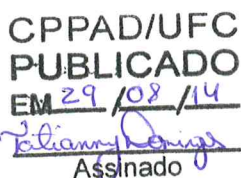 CPPAD/UFC
PUBLICADO
EM 29 / 08 / 14
Tatianny Domingos
Assinado